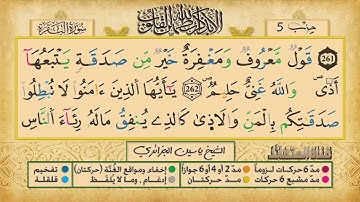 سورة البقرة
ألا بذكر الله تطمئن القلوب
حزب 5
261 قَوْلٌ مَّعْرُوفٌ وَمَغْفِرَةٌ خَيْرٌ مِّن صَدَقَةٍ يَتْبَعُهَآ
أَذًى وَاللَّهُ غَنِيٌّ حَلِيمٌ 262 يَٰٓأَيُّهَا الَّذِينَ ءَامَنُوا لَا تُبْطِلُوا
صَدَقَٰتِكُم بِالْمَنِّ وَالَاذ۪ىٰ كَالَّذِے يُنفِقُ مَالَهُۥ رِئَآءَ النَّاسِ
الشيخ ياسين الجزائري
مدّ 6 حركات لزوماً مدّ 2 أو 4 أو 6 جوازاً إخفاء، ومواقع الغُنَّة (حركتان) تفخيم
مدّ مشبع 6 حركات مدّ حركتان إدغام، وما لا يُلفظ قلقلة